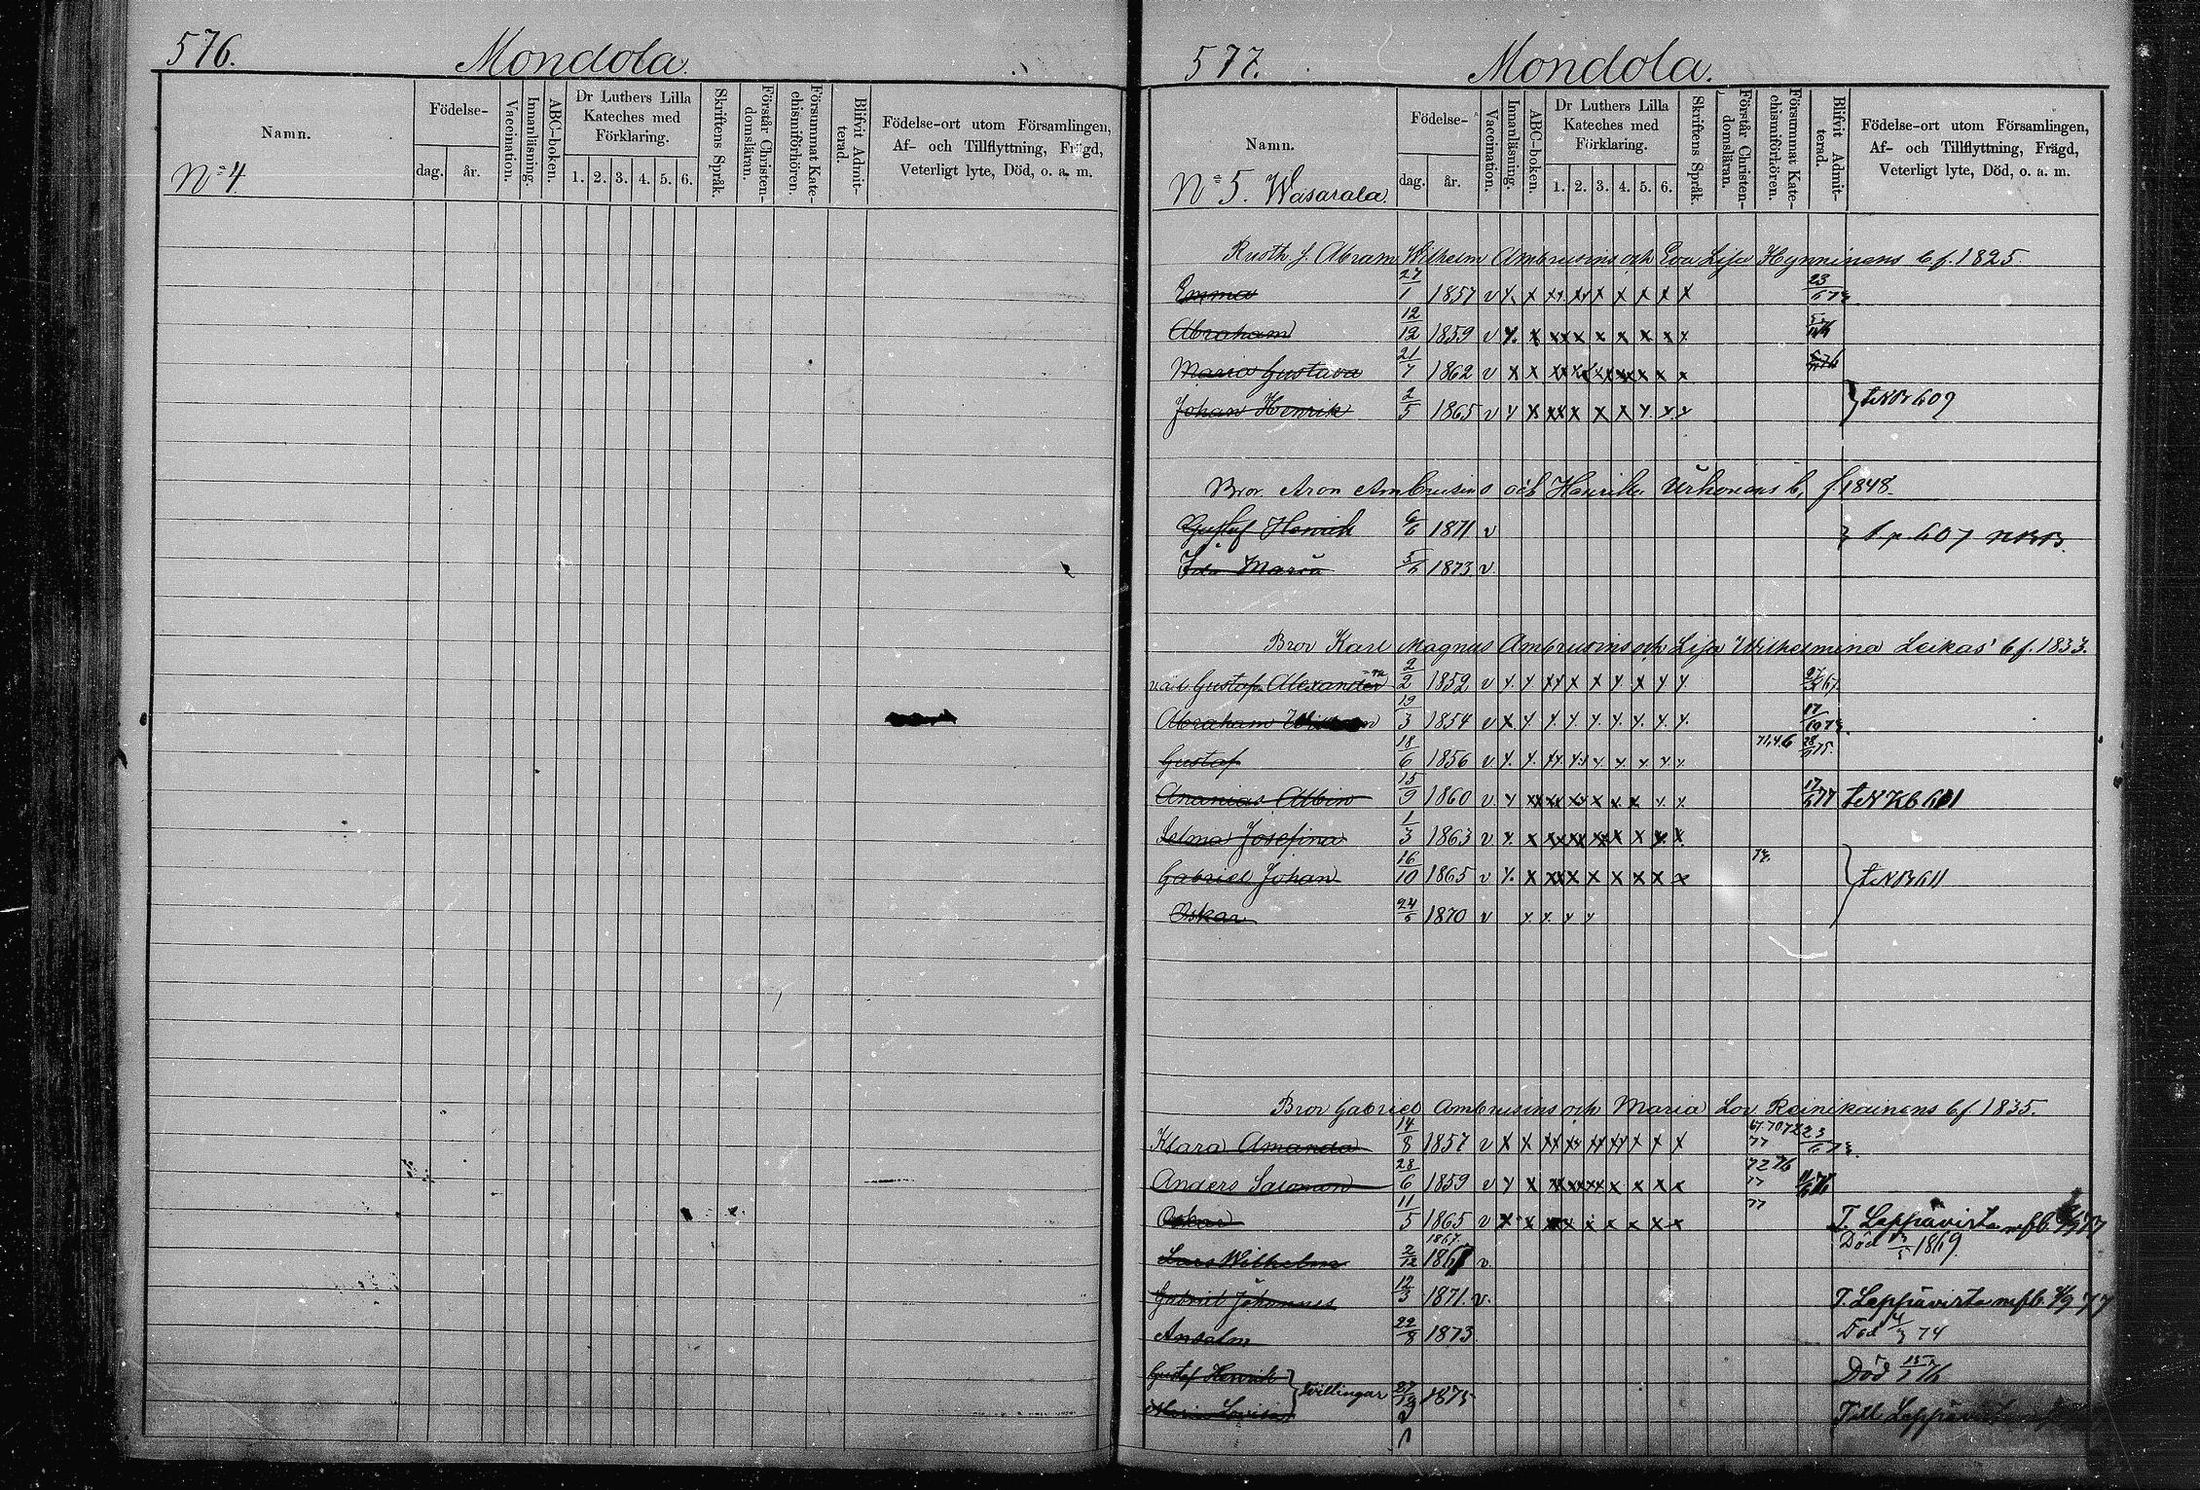 576.
Mondola.
Namn.
Födelse-
dag.
år.
Vaccination.
Innanläsning.
ABC-boken.
Dr Luthers Lilla
Kateches med
Förklaring.
1. 2. 3. 4. 5. 6.
Skriftens Språk.
Förstår Christen-
domsläran.
Försummat Kate-
chismiförhören.
Blifvit Admit-
terad.
Födelse-ort utom Församlingen,
Af- och Tillflyttning, Frägd,
Veterligt lyte, Död, o. a. m.
No 4.
577.
Mondola.
Namn.
Födelse-
dag.
år.
Vaccination.
Innanläsning.
ABC-boken.
Dr Luthers Lilla
Kateches med
Förklaring.
1. 2. 3. 4. 5. 6.
Skriftens Språk.
Förstår Christen-
domsläran.
Försummat Kate-
chismiförhören.
Blifvit Admit-
terad.
Födelse-ort utom Församlingen,
Af- och Tillflyttning, Frägd,
Veterligt lyte, Död, o. a. m.
No 5. Wasarala.
Rusth. f. Abram Wilhelm Ambrusins och Eva Lisa Hynninens b f. 1825.
Emma 27/1 1857 v x x xx xx x x x x x 23/6 73
Abraham 12/12 1859 v x x xx x x x x x x
Maria Gustava 21/7 1862 v x x
Johan Henrik 2/5 1865 v x x xx x x x x x x } 609
Bror Aron Ambrusins och Henrika Urhonens b. f 1848.
Gustaf Henrik 6/6 1871 v } 607
Ida Maria 5/6 1873 v.
Bror Karl Magnus Ambrusins och Lisa Wilhelmina Leikas' b f. 1833.
Gustaf Alexander 2/2 1852 v x x xx x x x x x x 67.
Abraham 19/3 1854 v x x x x x x x x x 17/10 73.
Gustaf 18/6 1856 v x x xx xx x x x x x 75.
Ananias Albin 15/9 1860 v x 77 611
Selma Josefina 1/3 1863 v x x
Gabriel Johan 16/10 1865 v x x xx x x x x x x } 611
Oskar 24/5 1870 v x x x x
Bror Gabriel Ambrusins och Maria Lov. Reinikainens b f 1835.
Klara Amanda 14/8 1857 v x x xx xx xx xx x x x 77 23/6 73.
Anders Salomon 28/6 1859 v x x 72 76 77
Oskar 11/5 1865 v x x 77 T. Leppävirta
Lars Wilhelm 2/12 1867 v Död 1869
Gabriel Johannes 12/3 1871. v. T. Leppävirta mfb. 77
Anselm 22/8 1873 Död 74
Gustaf Henrik } tvillingar 1875 Död 76
Maria Lovisa Till Leppävirta